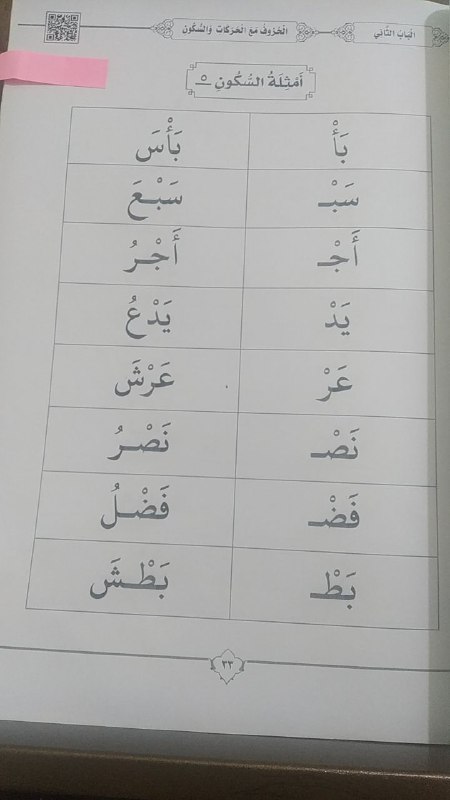 الْبَابُ الثَّانِي الْحُرُوفُ مَعَ الْحَرَكَاتِ وَالسُّكُونِ
أَمْثِلَةُ السُّكُونِ ـْ
بَأْ بَأْسَ
سَبْـ سَبْعَ
أَجْـ أَجْرُ
يَدْ يَدْعُ
عَرْ عَرْشَ
نَصْـ نَصْرُ
فَضْـ فَضْلُ
بَطْـ بَطْشَ
٣٣